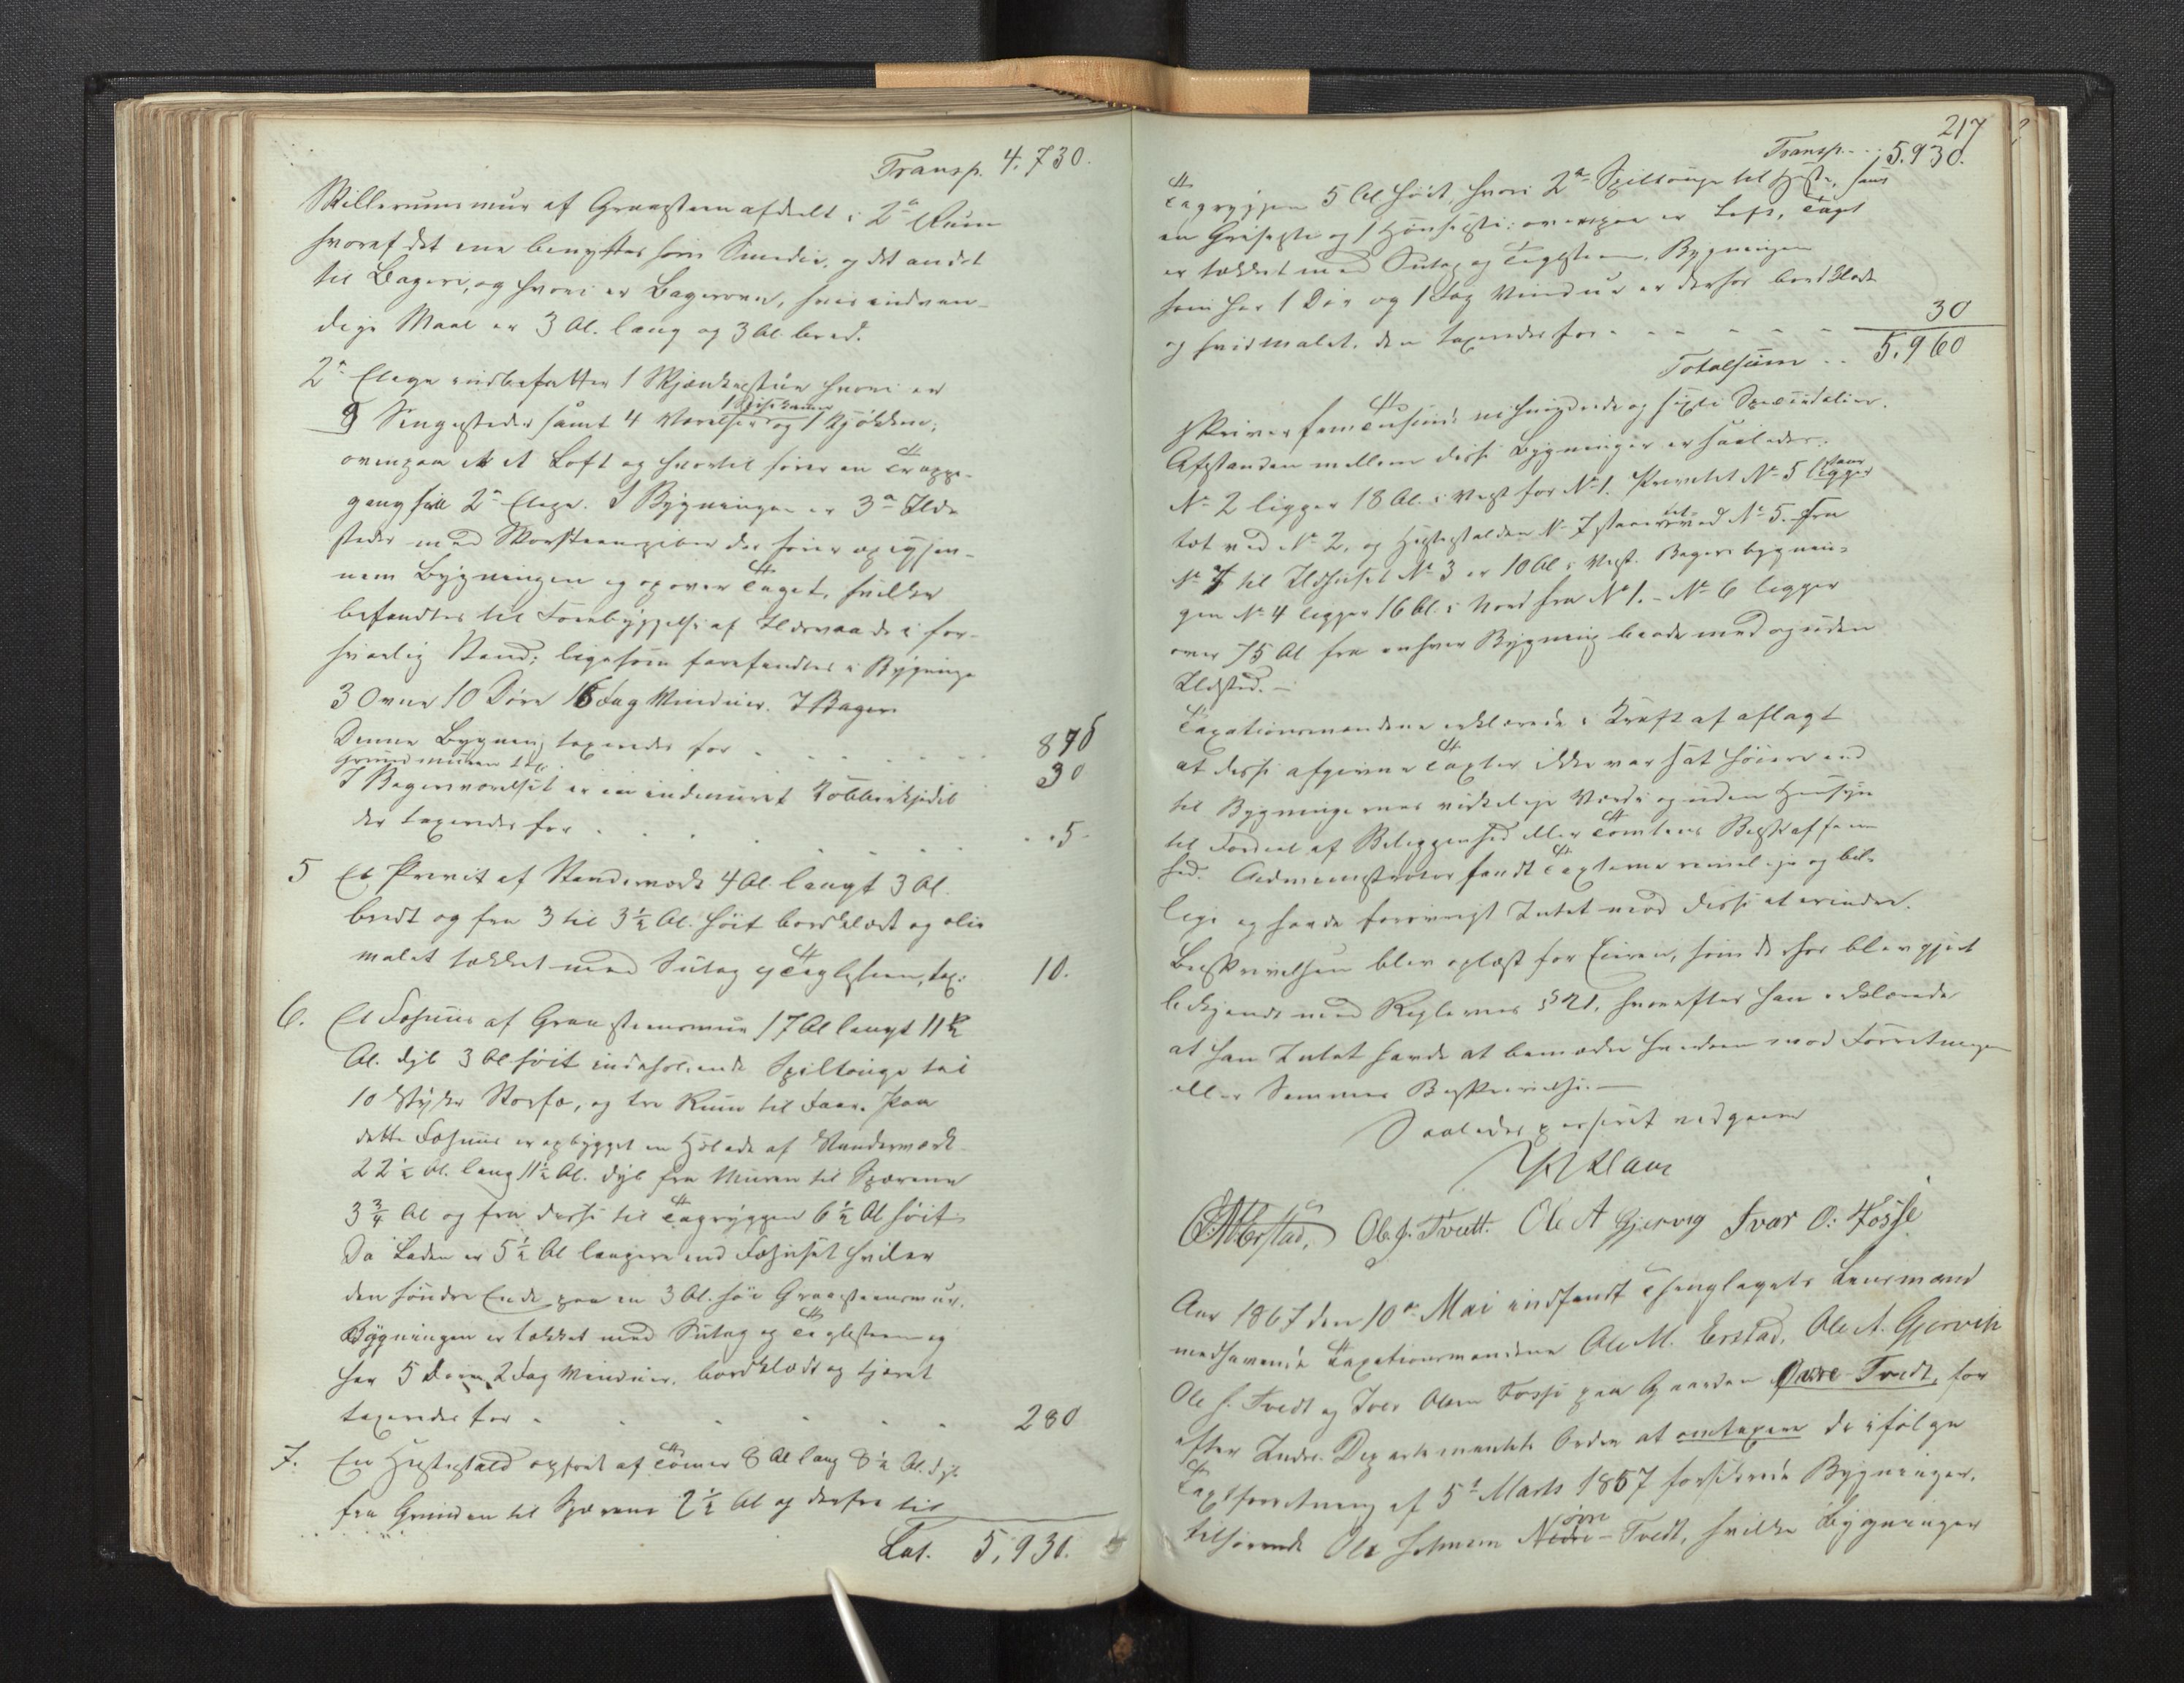 Transp. 4.730.
Skillerumsmur af Graasteen afdeelt i 2de Rum
hvoraf det ene benyttes som Smedie, og det andet
til Bageri, og hvori er Bagerovn, hvis indven-
dige Maal er 3 Al. lang og 3 Al. bred.
2den Etage indbefatter 1 Skjænkestue hvori er
9 Sengesteder samt 4 Værelser og 1 Spiskamer 1 Kjøkken;
ovenpaa er et Loft og hvortil fører en Trappe-
gang fra 2den Etage. I Bygningen er 3de Ilde
steder med Skorsteenspiber der fører op igjen-
nem Bygningen og op over Taget, hvilke
befandtes til Forebyggelse af Ildsvaade i for-
svarlig Stand; ligesom forefandtes i Bygninge
3 Ovne 10 Døre 16 Fag Vinduer. I Bager
Denne Bygning taxeredes for 
Grundmuren tax. 30
I Bagerværelset er en indmuret Kobberkjedel
der taxeredes for 5
5 Et Privet af Standerværk 4 Al. langt 3 Al.
bredt og fra 3 til 3½ Al. høit bordklædt og olie
malet tækket med Sutag og Taglsteen, tax: 10.
6. Et Fæhuus af Graasteensmuur 17 Al langt 11½
Al. dyb 3 Al høit indeholdende Spiltouge til
10 Stykr Storfæ, og tre Rum til Faar. Paa
dette Fæhuus er opbygget en Hølade af Standerværk
22½ Al. lang 11½ Al. dyb fra Muren til Sperrene
3¾ Al og fra disse til Tagryggen 6½ Al høit
Da Laden er 5½ Al længere end Fæhuset hviler
den søndre Ende paa en 3 Al. høi Graasteensmur.
Bygningen er tækket med Sutag og Taglsteen og
har 5 Døre 2 Fag Vinduer, bordklædt og tjæret
taxeredes for 280
7. En Hestestald opført af Tømer 8 Al lang 8½ Al. dyb
fra Grunden til Sperrene 2½ Al og derfra til
Lat. 5,930.
217
Transp. 5.930.
Tagryggen 5 Al høit, hvori 2de Spiltouge til Heste, samt
en Grisesti og 1 Hønsesti; ovenpaa er Loft, Taget
er tækket med Sutag og Taglsteen, Bygningen
som har 1 Dør og 1 Fag Vindue er derhos bordklædt
og hvidmalet. den taxeredes for 30
Totalsum 5.960
skriver femtusind nihundrede og sexti Speciedaler.
Afstanden mellem disse Bygninger er saaledes:
No 2 ligger 18 Al. i Vest for No 1. Privetet No 5 staar
tæt ved No 2, og Hestestalden No 7 staar tæt ved No 5. Fra
No 7 til Ildhuset No 3 er 10 Al i Vest. Bageribygnin-
gen No 4 ligger 16 Al. i Nord fra No 1. – No 6 ligger
over 75 Al fra enhver Bygning baade med og uden
Ildsted. –
Taxationsmændene erklærede i Kraft af aflagt
at disse afgivne Taxter ikke var sat høiere end
til Bygningernes virkelige Værdi og uden Hensyn
til Fordeel af Beliggenhed eller Tomtens Beskaffen
hed. Administrator fandt Taxterne rimelige og bil-
lige og havde forøvrigt Intet mod disse at erindre.
Beskrivelsen blev oplæst for Eieren, som derhos blev gjort
bekjendt med Reglernes § 21, hvorefter han erklærede
at han Intet havde at bemærke hverken mod Forretningen
eller Sammes Beskrivelse. –
Saaledes passeret vedgaaes
O M Erstad, Ole J. Tvett. Ole A Gjervig Ivar O: Fosse
Aar 1867 den 10de Mai indfandt Thinglagets Lensmand
medhavende Taxationsmændene Ole M. Erstad, Ole A. Gjervik
Ole J. Tvedt og Iver Olsen Fosse paa Gaarden Øvre-Tvedt, for
efter Indre-Departementets Orden at omtaxere de ifølge
Taxtforretning af 5te Marts 1857 forsikrede Bygninger,
tilhørende Ole Johnsen Nedre øvre - Tvedt, hvilke Bygninger